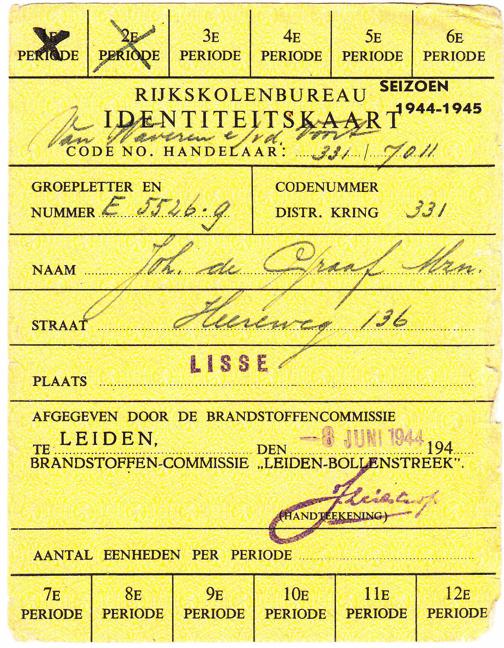 1E PERIODE 2E PERIODE 3E PERIODE 4E PERIODE 5E PERIODE 6E PERIODE
RIJKSKOLENBUREAU SEIZOEN
IDENTITEITSKAART 1944-1945
Van Waveren e/vd. Voort
CODE NO. HANDELAAR: 331 / 7011
GROEPLETTER EN NUMMER E 5526-g
CODENUMMER DISTR. KRING 331
NAAM Joh. de Graaf Mzn.
STRAAT Heereweg 136
PLAATS LISSE
AFGEGEVEN DOOR DE BRANDSTOFFENCOMMISSIE
TE LEIDEN, DEN -8 JUNI 1944 194
BRANDSTOFFEN-COMMISSIE „LEIDEN-BOLLENSTREEK".
(HANDTEEKENING)
AANTAL EENHEDEN PER PERIODE
7E PERIODE 8E PERIODE 9E PERIODE 10E PERIODE 11E PERIODE 12E PERIODE